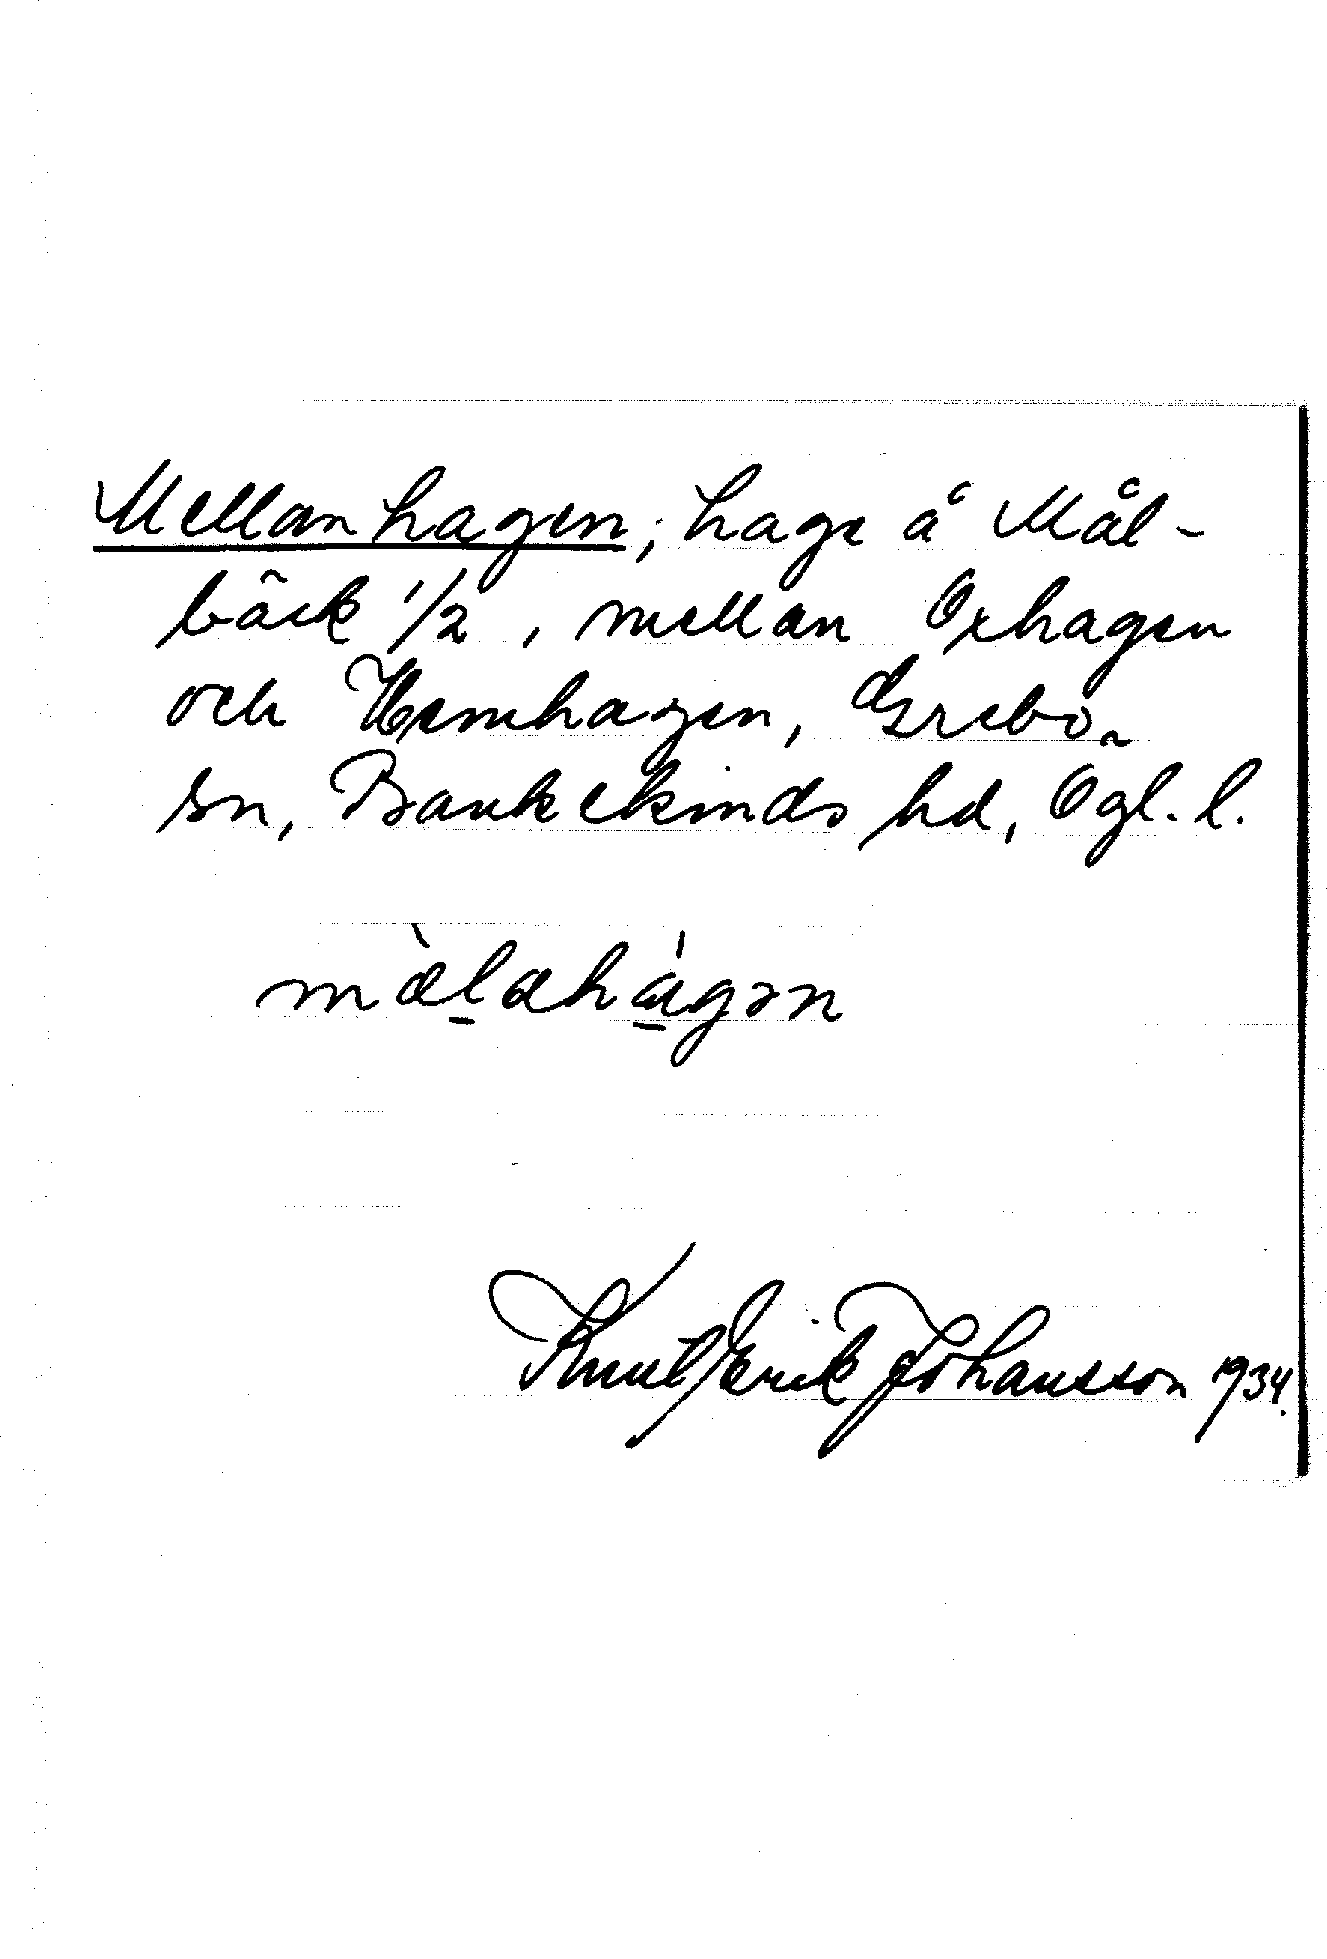 Mellanhagen; hage å Mål-
bäck 1/2, mellan Oxhagen
och Hemhagen, Grebo
sn, Bankekinds hd, Ögl. l.
mælahagən
Knut Erik Johansson 1934.